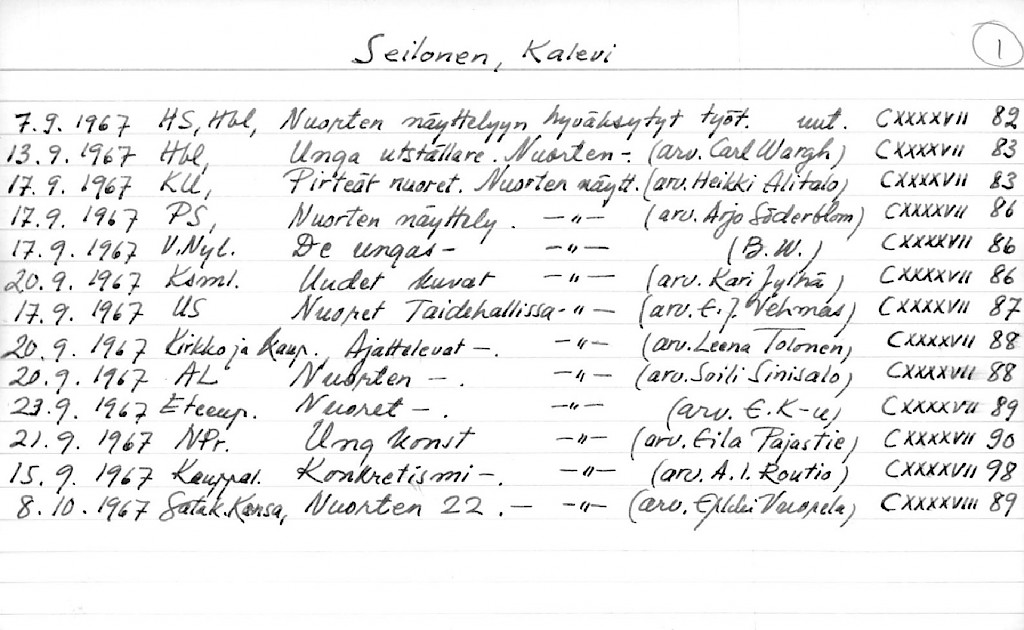 Seilonen, Kalevi
1
7.9.1967 HS, Hbl, Nuorten näyttelyyn hyväksytyt työt. uut. CXXXXVII 82
13.9.1967 Hbl, Unga utställare. Nuorten -. (arv. Carl Wargh) CXXXXVII 83
17.9.1967 KU, Pirteät nuoret. Nuorten näytt. (arv. Heikki Alitalo) CXXXXVII 83
17.9.1967 PS, Nuorten näyttely. —"— (arv. Arjo Söderblom) CXXXXVII 86
17.9.1967 V.Nyl. De ungas - —"— (B.W.) CXXXXVII 86
20.9.1967 Ksml. Uudet kuvat —"— (arv. Kari Jylhä) CXXXXVII 86
17.9.1967 US Nuoret Taidehallissa -"— (arv. E.J. Vehmas) CXXXXVII 87
20.9.1967 Kirkko ja Kaup., Ajattelevat -. —"— (arv. Leena Tolonen) CXXXXVII 88
20.9.1967 AL Nuorten -. —"— (arv. Soili Sinisalo) CXXXXVII 88
23.9.1967 Nuoret -. —"— (arv. E.K-u) CXXXXVII 89
21.9.1967 NPr. Ung konst —"— (arv. Eila Pajastie) CXXXXVII 90
15.9.1967 Kauppal. Konkretismi -. —"— (arv. A.I. Routio) CXXXXVII 98
8.10.1967 Satak.Kansa, Nuorten 22. — —"— (arv. CXXXXVIII 89